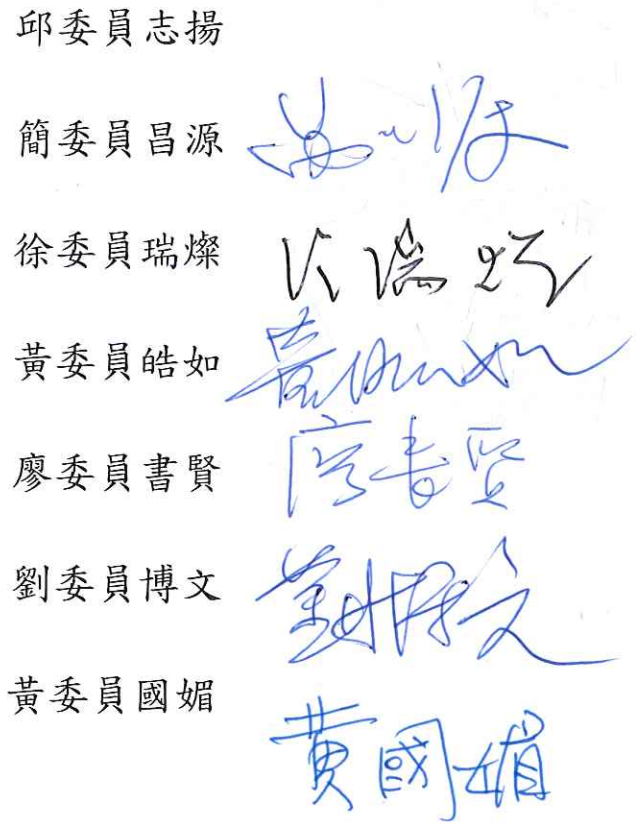 邱委員志揚
簡委員昌源
徐委員瑞燦
徐瑞燦
黃委員皓如
黃皓如
廖委員書賢
廖書賢
劉委員博文
劉博文
黃委員國媚
黃國媚